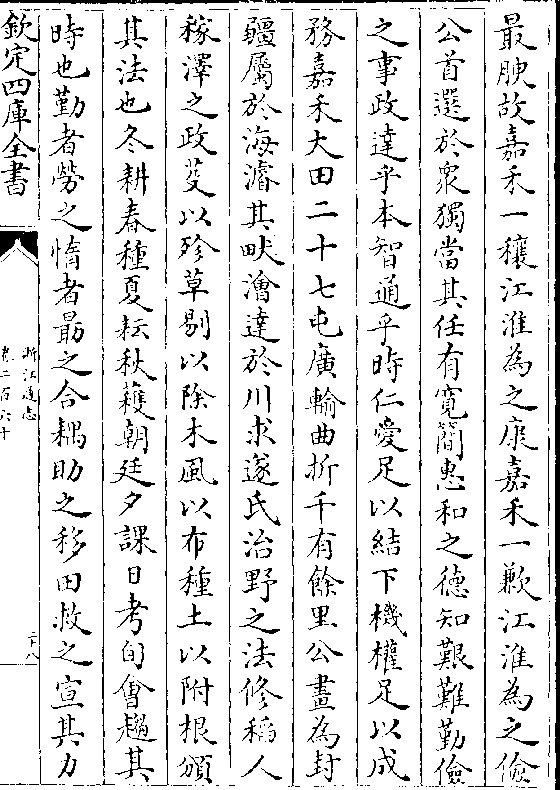 最腴故嘉禾一穰江淮為之康嘉禾一歉江淮為之儉
公首選於衆獨當其任有寛簡惠和之徳知艱難勤儉
之事政達乎本智通乎時仁愛足以結下機權足以成
務嘉禾大田二十七屯廣輪曲折千有餘里公畫為封
疆屬於海濬其畎澮達於川求遂氏治野之法修稻人
稼澤之政芟以殄草剔以除木風以布種土以附根頒
其法也冬耕春種夏耘秋穫朝廷夕課日考旬會趨其
時也勤者勞之惰者勗之合耦助之移田救之宣其力
欽定四庫全書
浙江通志
卷二百六十
二十八